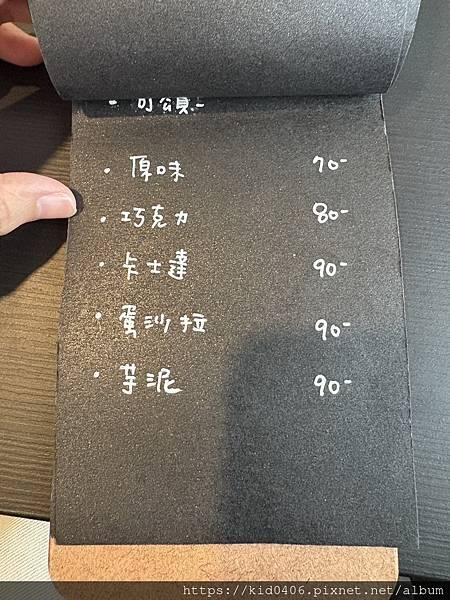 · 可頌 -
· 原味 70-
· 巧克力 80-
· 卡士達 90-
· 蛋沙拉 90-
· 芋泥 90-
https://kid0406.pixnet.net/album